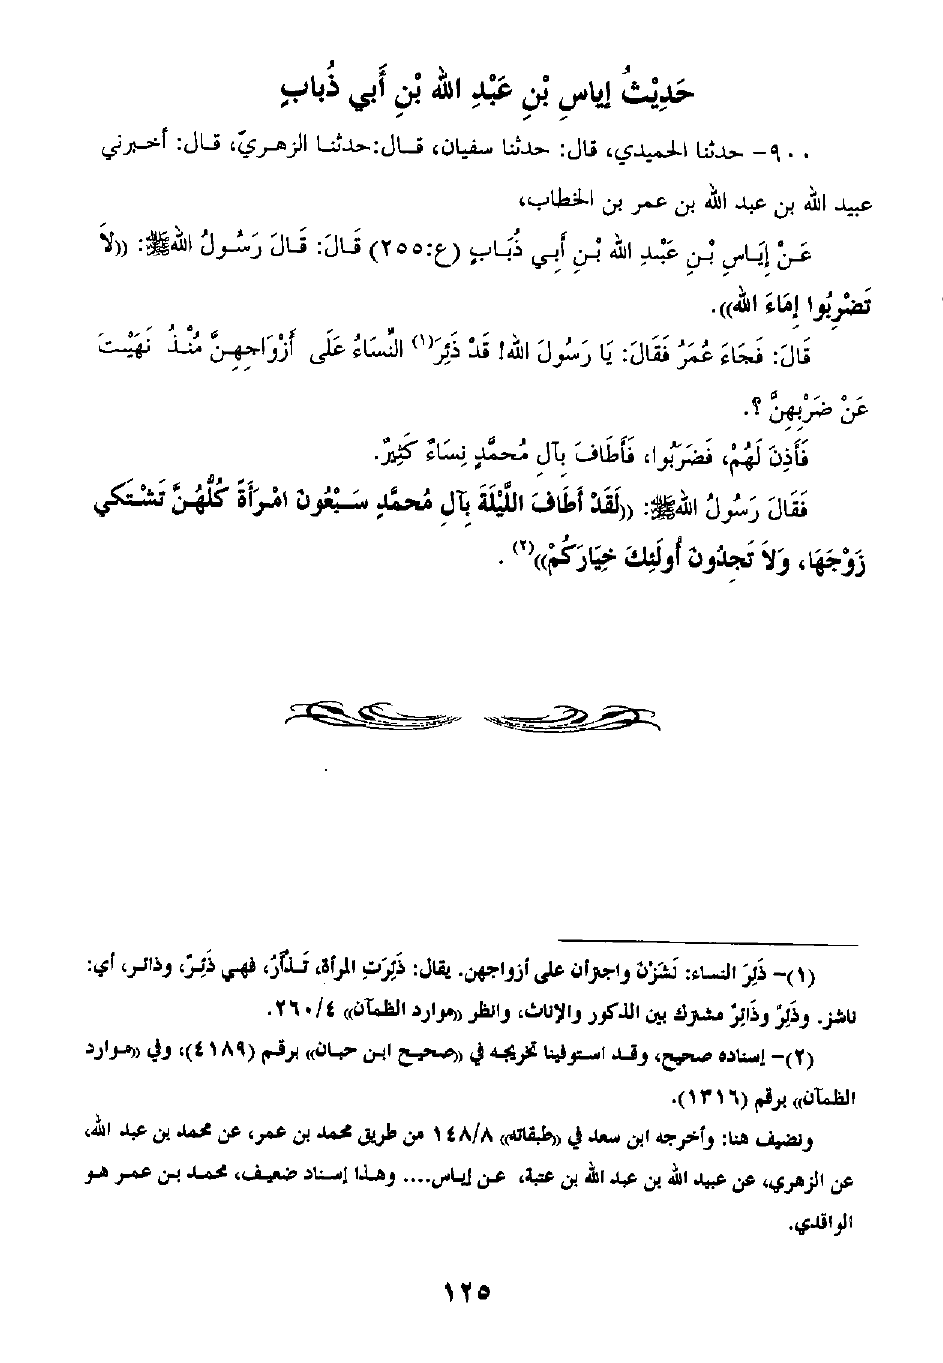 حَدِيْثُ إِياسِ بْنِ عَبْدِ اللهِ بْنِ أَبي ذُبابٍ
٩٠٠ – حدثنا الحميدي، قال: حدثنا سفيان، قال:حدثنا الزهريّ، قال: أخبرني
عبيد الله بن عبد الله بن عمر بن الخطاب،
عَنْ إِيَاسِ بْنِ عَبْدِ اللهِ بْنِ أَبِي ذُبَابٍ (ع:٢٥٥) قَالَ: قَالَ رَسُولُ اللهِ ﷺ: ((لاَ
تَضْرِبُوا إِمَاءَ اللهِ)).
قَالَ: فَجَاءَ عُمَرُ فَقَالَ: يَا رَسُولَ اللهِ! قَدْ ذَئِرَ(١) النِّسَاءُ عَلَى أَزْوَاجِهِنَّ مُنْذُ نَهَيْتَ
عَنْ ضَرْبِهِنَّ ؟.
فَأَذِنَ لَهُمْ، فَضَرَبُوا، فَأَطَافَ بِآلِ مُحمَّدٍ نِسَاءٌ كَثِيرٌ.
فَقَالَ رَسُولُ اللهِ ﷺ: ((لَقَدْ أَطَافَ اللَّيْلَةَ بِآلِ مُحمَّدٍ سَبْعُونَ امْرَأَةً كُلُّهُنَّ تَشْتَكي
زَوْجَهَا، وَلاَ تَجِدُونَ أُولَئِكَ خِيَارَكُمْ))(٢) .
(١)– ذَئِرَ النساء: نَشَزْنَ واجترأن على أزواجهن. يقال: ذَئِرَتِ المرأة، تَذْأَرُ، فهي ذَئِرٌ، وذائر، أي:
ناشز. وذَئِرٌ وذَائِرٌ مشترك بين الذكور والإناث، وانظر ((موارد الظمآن)) ٢٦٠/٤.
(٢)– إسناده صحيح، وقد استوفينا تخريجه في ((صحيح ابن حبان)) برقم (٤١٨٩)، وفي ((موارد
الظمآن)) برقم (١٣١٦).
ونضيف هنا: وأخرجه ابن سعد في ((طبقاته)) ١٤٨/٨ من طريق محمد بن عمر، عن محمد بن عبد الله،
عن الزهري، عن عبيد الله بن عبد الله بن عتبة، عن إياس.... وهذا إسناد ضعيف، محمد بن عمر هو
الواقدي.
١٢٥